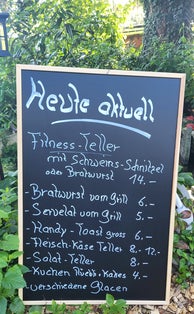 Heute aktuell
Fitness-Teller
mit Schweins-Schnitzel
oder Bratwurst 14.-
- Bratwurst vom Grill 6.-
- Servelat vom Grill 5.-
- Handy-Toast gross 6.-
- Fleisch-Käse Teller 8.- 12.-
- Salat-Teller 8.-
- Kuchen 4.-
verschiedene Glacen